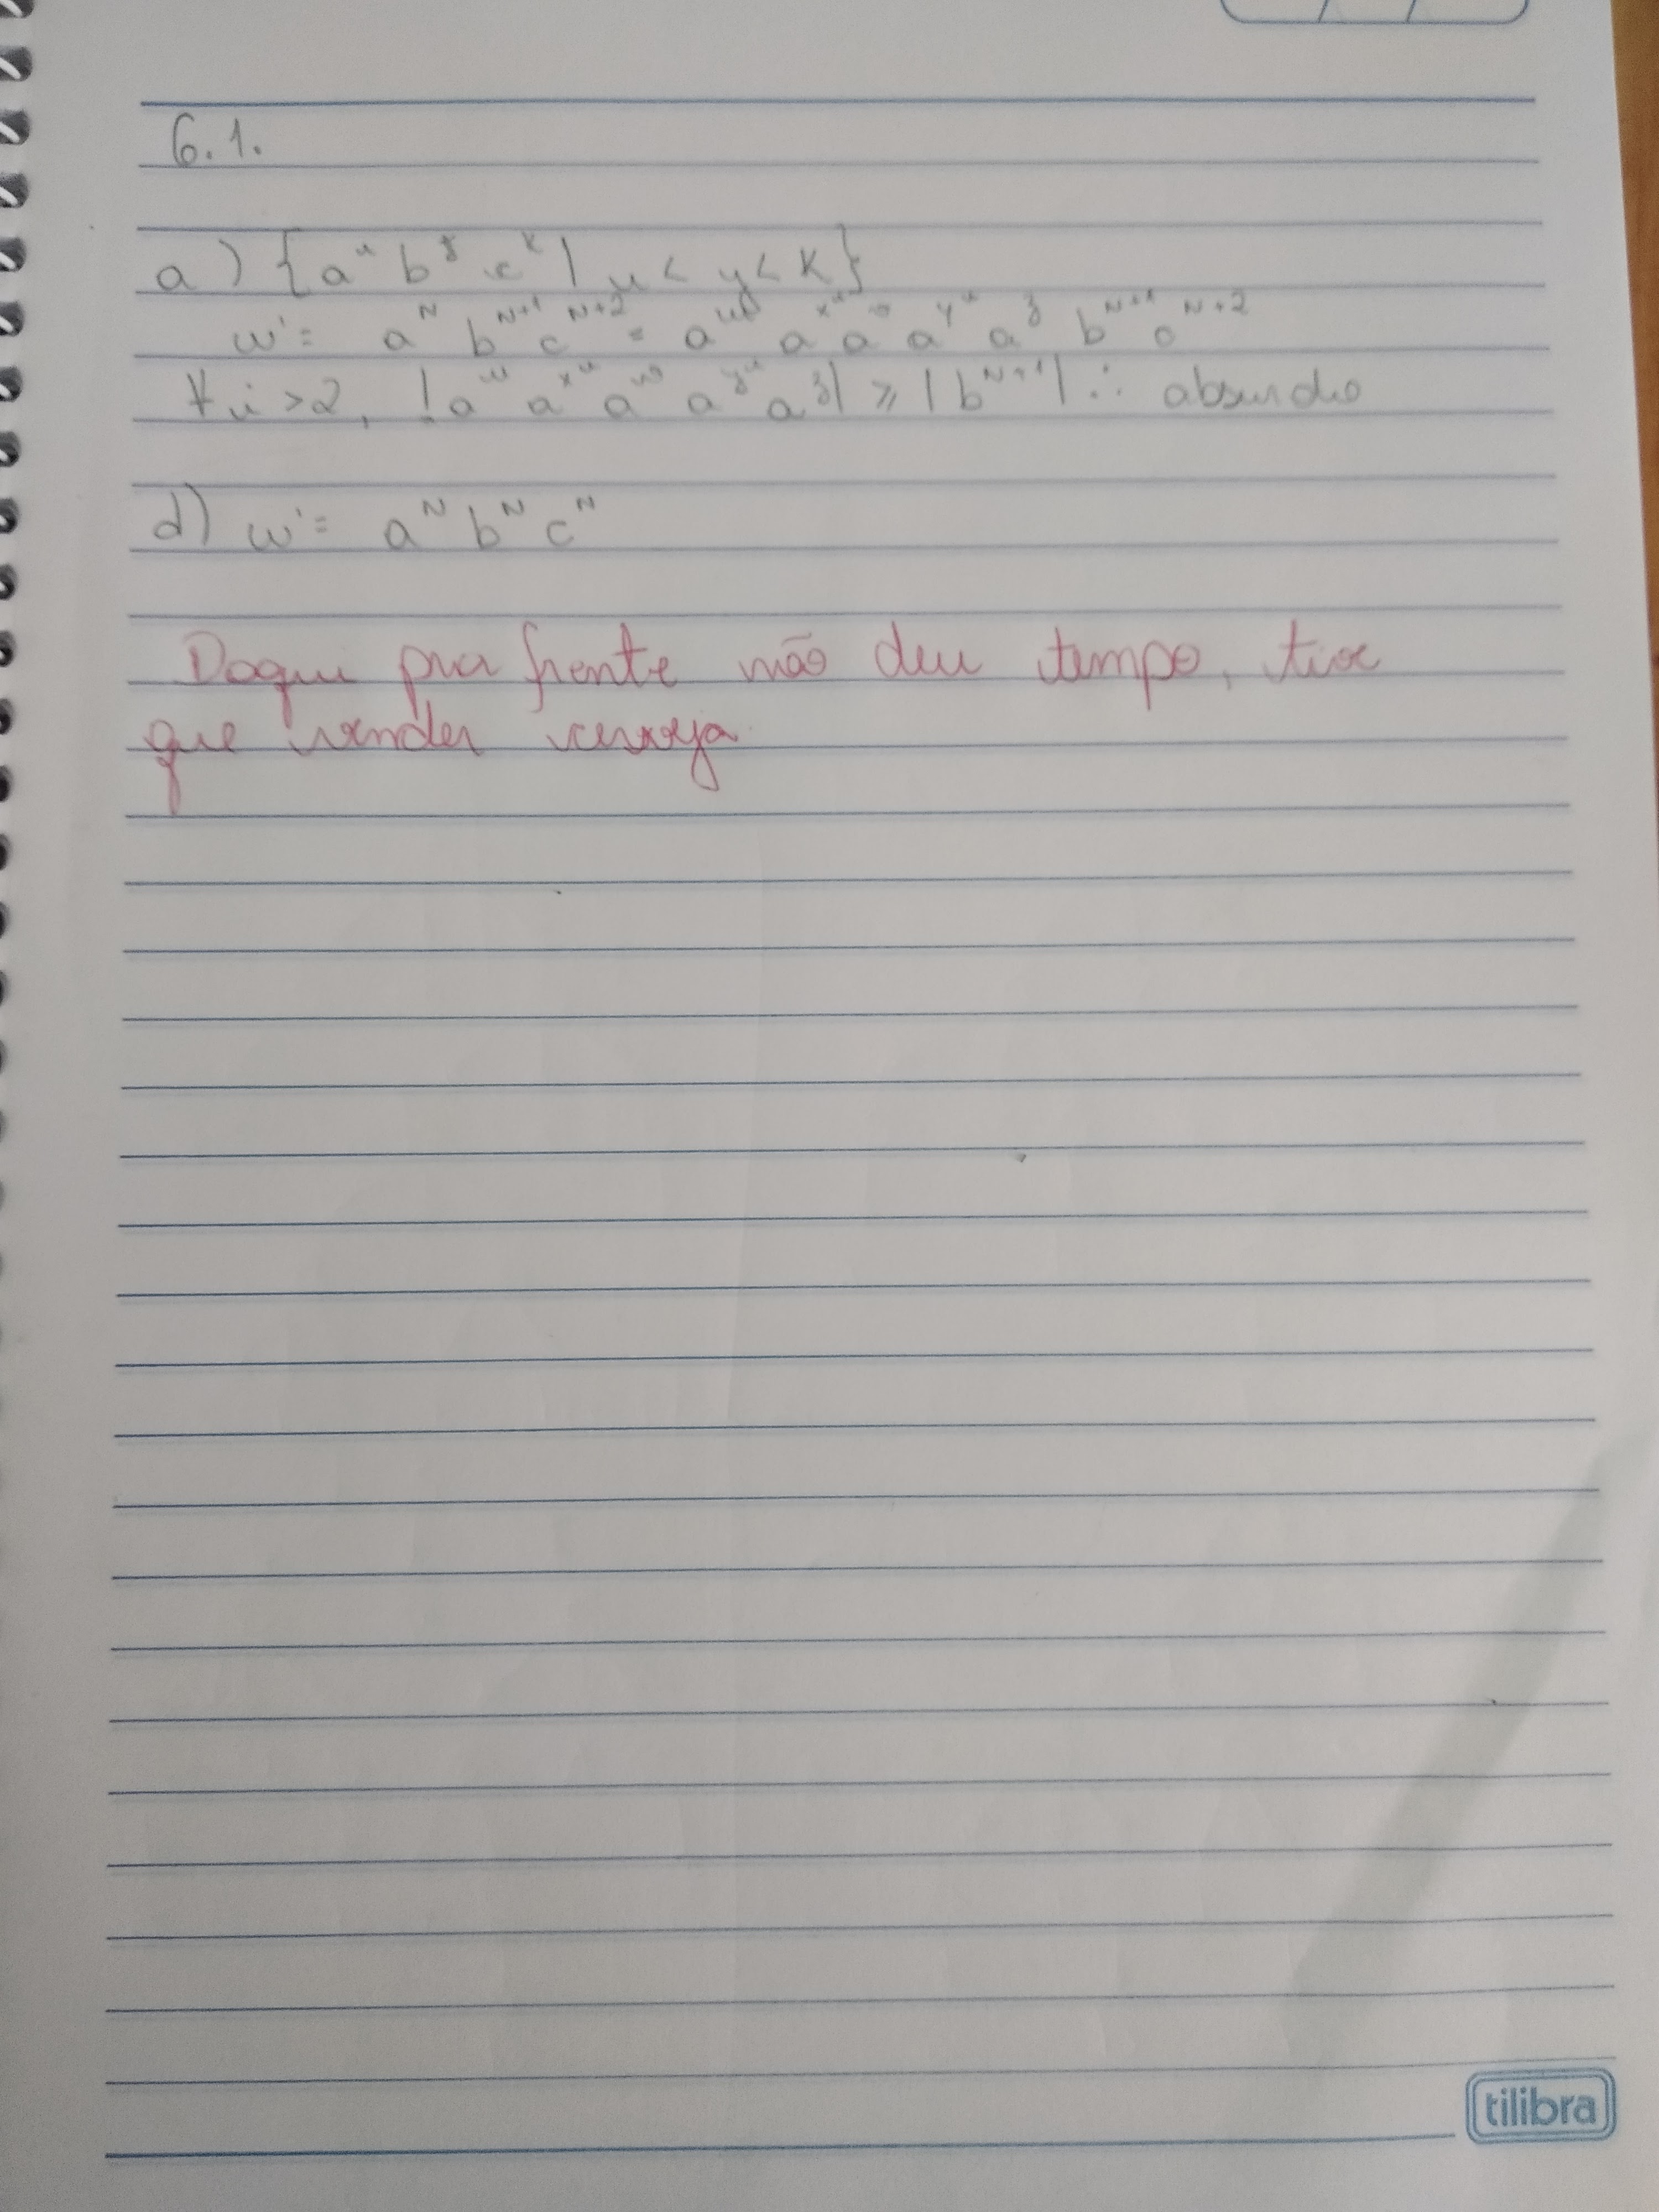 6.1.
a) {a^i b^j c^k | i < j < k}
w' = a^N b^N+1 c^N+2 = a^u a^xi a^w a^yi a^z b^N+1 c^N+2
∀ i > 2, |a^u a^xi a^w a^yi a^z| ≥ |b^N+1| ∴ absurdo
d) w' = a^N b^N c^N
Daqui pra frente não deu tempo, tive
que vender cerveja
tilibra